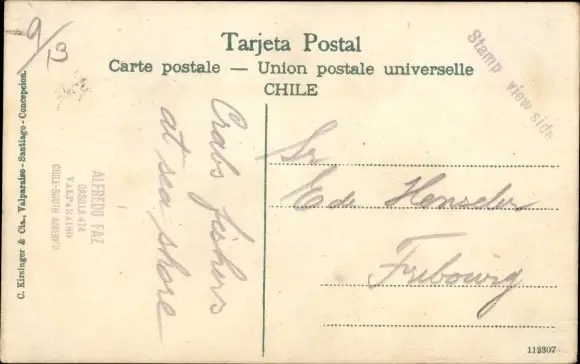 9/13
Tarjeta Postal
Carte postale — Union postale universelle
CHILE
Stamp view side
C. Kirsinger & Cia., Valparaiso - Santiago - Concepcion.
ALFREDO FAZ
CASILLA 474
VALPARAISO
CHILE-SOUTH AMERICA
Crabs fishers
at sea shore
Sr
Fribourg
112307